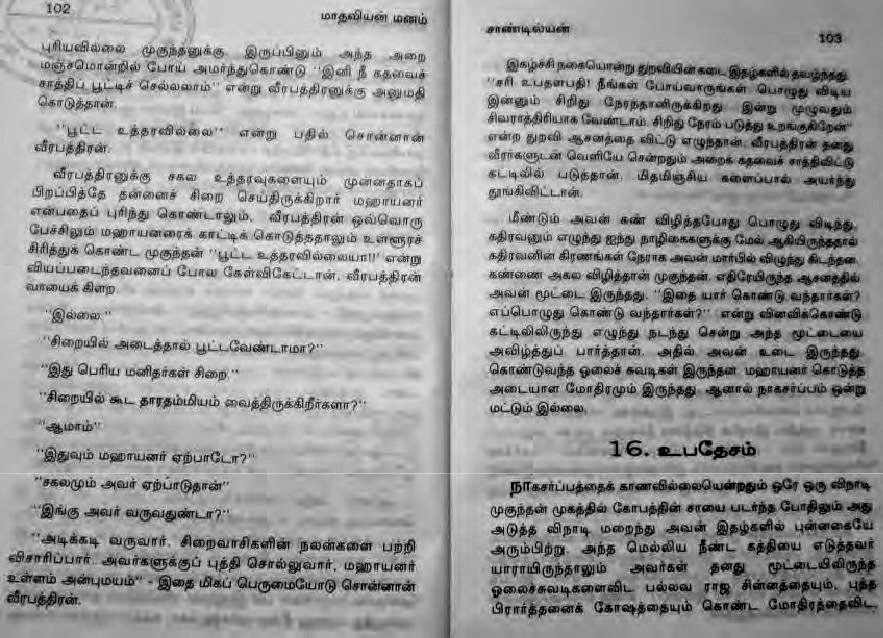 102
மாதவியன் மனம்
புரியவில்லை முகுந்தனுக்கு. இருப்பினும் அந்த அறை
மஞ்சமொன்றில் போய் அமர்ந்துகொண்டு "இனி நீ கதவைச்
சாத்திப் பூட்டிச் செல்லலாம்" என்று வீரபத்திரனுக்கு அனுமதி
கொடுத்தான்.
"பூட்ட உத்தரவில்லை" என்று பதில் சொன்னான்
வீரபத்திரன்.
வீரபத்திரனுக்கு சகல உத்தரவுகளையும் முன்னதாகப்
பிறப்பித்தே தன்னைச் சிறை செய்திருக்கிறார் மஹாயனர்
என்பதைப் புரிந்து கொண்டாலும், வீரபத்திரன் ஒவ்வொரு
பேச்சிலும் மஹாயனரைக் காட்டிக் கொடுத்ததாலும் உள்ளூரச்
சிரித்துக் கொண்ட முகுந்தன் "பூட்ட உத்தரவில்லையா!!" என்று
வியப்படைந்தவனைப் போல கேள்விகேட்டான், வீரபத்திரன்
வாயைக் கிளற.
"இல்லை."
"சிறையில் அடைத்தால் பூட்டவேண்டாமா?"
"இது பெரிய மனிதர்கள் சிறை."
"சிறையில் கூட தாரதம்மியம் வைத்திருக்கிறீர்களா?"
"ஆமாம்"
"இதுவும் மஹாயனர் ஏற்பாடோ?"
"சகலமும் அவர் ஏற்பாடுதான்"
"இங்கு அவர் வருவதுண்டா?"
"அடிக்கடி வருவார், சிறைவாசிகளின் நலன்களை பற்றி
விசாரிப்பார். அவர்களுக்குப் புத்தி சொல்லுவார், மஹாயனர்
உள்ளம் அன்புமயம்" - இதை மிகப் பெருமையோடு சொன்னான்
வீரபத்திரன்.
சாண்டில்யன்
103
இகழ்ச்சி நகையொன்று துறவியின் கடை இதழ்களில் தவழ்ந்தது.
"சரி உபதளபதி! நீங்கள் போய்வாருங்கள். பொழுது விடிய
இன்னும் சிறிது நேரந்தானிருக்கிறது. இன்று முழுவதும்
சிவராத்திரியாக வேண்டாம். சிறிது நேரம் படுத்து உறங்குகிறேன்"
என்ற துறவி ஆசனத்தை விட்டு எழுந்தான். வீரபத்திரன் தனது
வீரர்களுடன் வெளியே சென்றதும் அறைக் கதவைச் சாத்திவிட்டு
கட்டிலில் படுத்தான். மிதமிஞ்சிய களைப்பால் அயர்ந்து
தூங்கிவிட்டான்.
மீண்டும் அவன் கண் விழித்தபோது பொழுது விடிந்து,
கதிரவனும் எழுந்து ஐந்து நாழிகைகளுக்கு மேல் ஆகியிருந்ததால்
கதிரவனின் கிரணங்கள் நேராக அவன் மார்பில் விழுந்து கிடந்தன.
கண்ணை அகல விழித்தான் முகுந்தன். எதிரேயிருந்த ஆசனத்தில்
அவன் மூட்டை இருந்தது. "இதை யார் கொண்டு வந்தார்கள்?
எப்பொழுது கொண்டு வந்தார்கள்?" என்று வினவிக்கொண்டு
கட்டிலிலிருந்து எழுந்து நடந்து சென்று அந்த மூட்டையை
அவிழ்த்துப் பார்த்தான். அதில் அவன் உடை இருந்தது.
கொண்டுவந்த ஓலைச் சுவடிகள் இருந்தன. மஹாயனர் கொடுத்த
அடையாள மோதிரமும் இருந்தது. ஆனால் நாகசர்ப்பம் ஒன்று
மட்டும் இல்லை.
16. உபதேசம்
நாகசர்ப்பத்தைக் காணவில்லையென்றதும் ஒரே ஒரு விநாடி
முகுந்தன் முகத்தில் கோபத்தின் சாயை படர்ந்த போதிலும் அது
அடுத்த விநாடி மறைந்து அவன் இதழ்களில் புன்னகையே
அரும்பிற்று. அந்த மெல்லிய நீண்ட கத்தியை எடுத்தவர்
யாராயிருந்தாலும் அவர்கள் தனது மூட்டையிலிருந்த
ஓலைச்சுவடிகளைவிட பல்லவ ராஜ சின்னத்தையும், புத்த
பிரார்த்தனைக் கோஷத்தையும் கொண்ட மோதிரத்தைவிட,